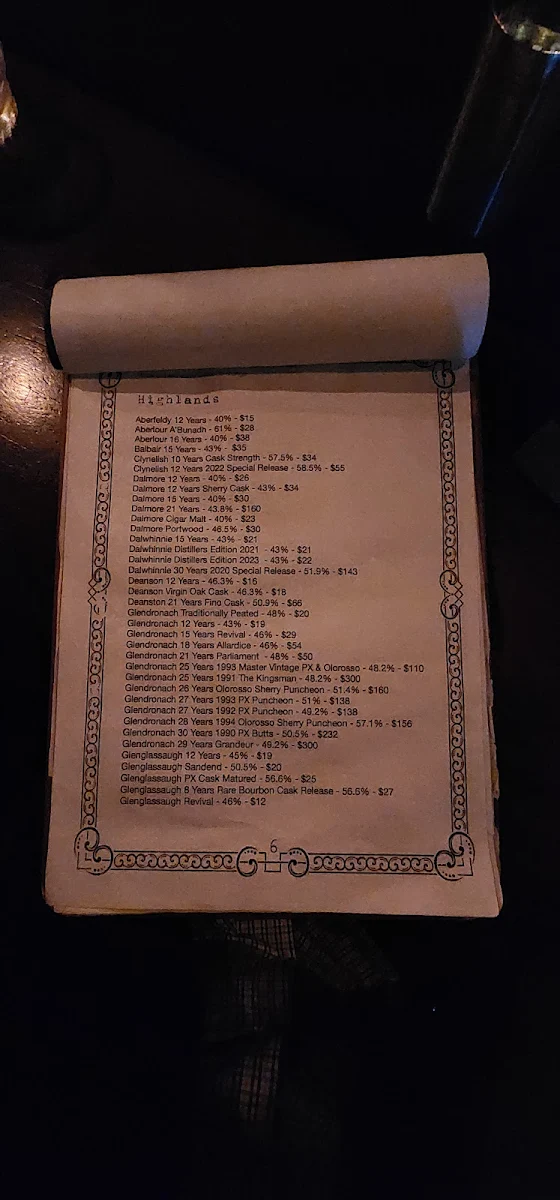 Highlands
Aberfeldy 12 Years - 40% - $15
Aberlour A'Bunadh - 61% - $28
Aberlour 16 Years - 40% - $38
Balbair 15 Years - 43% - $35
Clynelish 10 Years Cask Strength - 57.5% - $34
Clynelish 12 Years 2022 Special Release - 58.5% - $55
Dalmore 12 Years - 40% - $26
Dalmore 12 Years Sherry Cask - 43% - $34
Dalmore 15 Years - 40% - $30
Dalmore 21 Years - 43.8% - $160
Dalmore Cigar Malt - 40% - $23
Dalmore Portwood - 46.5% - $30
Dalwhinnie 15 Years - 43% - $21
Dalwhinnie Distillers Edition 2021 - 43% - $21
Dalwhinnie Distillers Edition 2023 - 43% - $22
Dalwhinnie 30 Years 2020 Special Release - 51.9% - $143
Deanson 12 Years - 46.3% - $16
Deanson Virgin Oak Cask - 46.3% - $18
Deanston 21 Years Fino Cask - 50.9% - $66
Glendronach Traditionally Peated - 48% - $20
Glendronach 12 Years - 43% - $19
Glendronach 15 Years Revival - 46% - $29
Glendronach 18 Years Allardice - 46% - $54
Glendronach 21 Years Parliament - 48% - $50
Glendronach 25 Years 1993 Master Vintage PX & Olorosso - 48.2% - $110
Glendronach 25 Years 1991 The Kingsman - 48.2% - $300
Glendronach 26 Years Olorosso Sherry Puncheon - 51.4% - $160
Glendronach 27 Years 1993 PX Puncheon - 51% - $138
Glendronach 27 Years 1992 PX Puncheon - 49.2% - $138
Glendronach 28 Years 1994 Olorosso Sherry Puncheon - 57.1% - $156
Glendronach 30 Years 1990 PX Butts - 50.5% - $232
Glendronach 29 Years Grandeur - 49.2% - $300
Glenglassaugh 12 Years - 45% - $19
Glenglassaugh Sandend - 50.5% - $20
Glenglassaugh PX Cask Matured - 56.6% - $25
Glenglassaugh 8 Years Rare Bourbon Cask Release - 56.6% - $27
Glenglassaugh Revival - 46% - $12
6